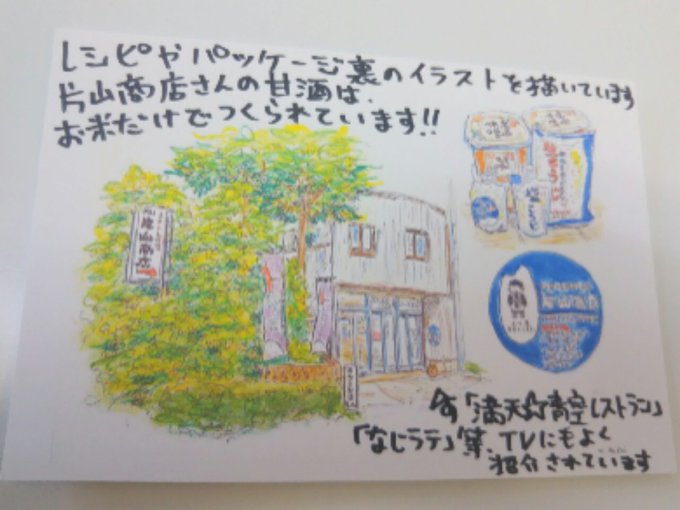 レシピやパッケージ裏のイラストを描いています
片山商店さんの甘酒は、
お米だけでつくられています!!
片山商店
「満天☆青空レストラン」
「なじラテ」等、TVにもよく
紹介されています